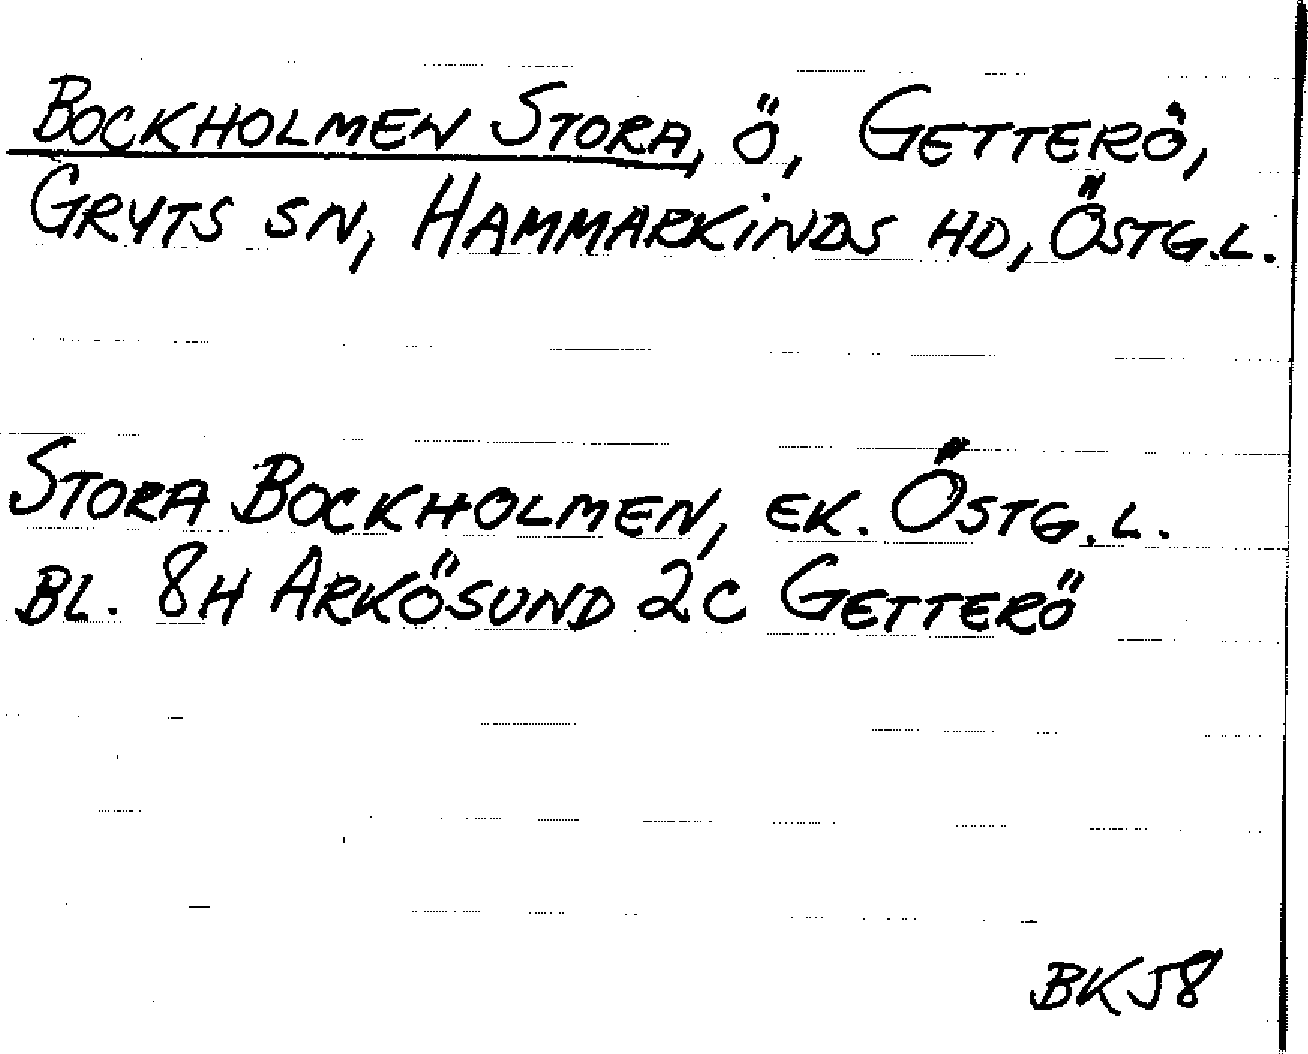 BOCKHOLMEN STORA, Ö, GETTERÖ,
GRYTS SN, HAMMARKINDS HD, ÖSTG.L.
STORA BOCKHOLMEN, EK. ÖSTG.L.
BL. 8H ARKÖSUND 2C GETTERÖ
BK58